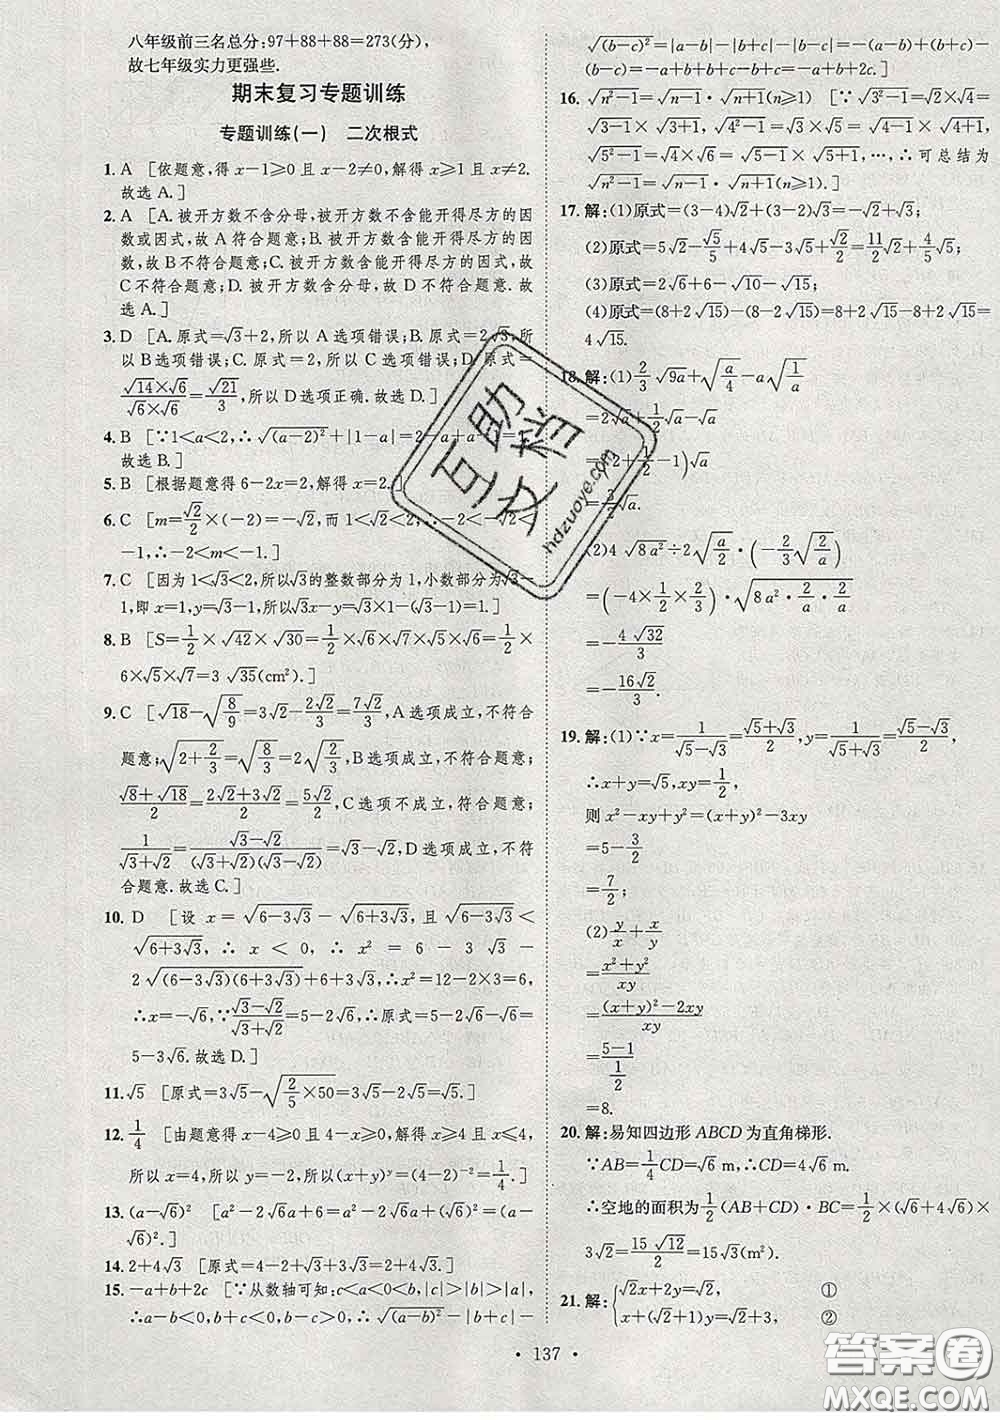 八年级前三名总分:97+88+88=273(分),
故七年级实力更强些.
期末复习专题训练
专题训练(一) 二次根式
1. A [依题意,得 x-1≥0 且 x-2≠0,解得 x≥1 且 x≠2.
故选 A.]
2. A [A. 被开方数不含分母,被开方数不含能开得尽方的因
数或因式,故 A 符合题意;B. 被开方数含能开得尽方的因
数,故 B 不符合题意;C. 被开方数含能开得尽方的因式,故
C 不符合题意;D. 被开方数含分母,故 D 不符合题意.
故选 A.]
3. D [A. 原式=√3+2,所以 A 选项错误;B. 原式=2√3,所
以 B 选项错误;C. 原式=2,所以 C 选项错误;D. 原式=
(√14×√6)/(√6×√6)=√21/3,所以 D 选项正确.故选 D.]
4. B [∵1<a<2,∴√(a-2)²+|1-a|=2-a+a-1=1.
故选 B.]
5. B [根据题意得 6-2x=2,解得 x=2.]
6. C [m=√2/2×(-2)=-√2,而 1<√2<2,∴-2<-√2<
-1,∴-2<m<-1.]
7. C [因为 1<√3<2,所以√3的整数部分为 1,小数部分为√3-
1,即 x=1,y=√3-1,所以√3x-y=√3×1-(√3-1)=1.]
8. B [S=1/2×√42×√30=1/2×√6×√7×√5×√6=1/2×
6×√5×√7=3√35(cm²).]
9. C [√18-√(8/9)=3√2-2√2/3=7√2/3,A 选项成立,不符合
题意;√(2+2/3)=√(8/3)=2√(2/3),B 选项成立,不符合题意;
(√8+√18)/2=(2√2+3√2)/2=5√2/2,C 选项不成立,符合题意;
1/(√3+√2)=(√3-√2)/((√3+√2)(√3-√2))=√3-√2,D 选项成立,不符
合题意.故选 C.]
10. D [设 x=√(6-3√3)-√(6+3√3),且√(6-3√3)<
√(6+3√3),∴x<0,∴x²=6-3√3-
2√((6-3√3)(6+3√3))+6+3√3,∴x²=12-2×3=6,
∴x=-√6,∵(√3-√2)/(√3+√2)=5-2√6,∴原式=5-2√6-√6=
5-3√6.故选 D.]
11. √5 [原式=3√5-√(2/5×50)=3√5-2√5=√5.]
12. 1/4 [由题意得 x-4≥0 且 4-x≥0,解得 x≥4 且 x≤4,
所以 x=4,所以 y=2,所以(x-y)^(-y)=(4-2)^(-2)=1/4.]
13. (a-√6)² [a²-2√6a+6=a²-2√6a+(√6)²=(a-
√6)².]
14. 2+4√3 [原式=4-2+√3+3√3=2+4√3.]
15. -a+b+2c [∵从数轴可知:c<a<0<b,|c|>|b|>|a|,
∴a-b<0,b+c<0,b-c>0,∴√(a-b)²-|b+c|-
√(b-c)²=|a-b|-|b+c|-|b-c|=b-a-[-(b+c)]-
(b-c)=b-a+b+c-b+c=-a+b+2c.]
16. √(n²-1)=√(n-1)·√(n+1)(n≥1) [∵√(3²-1)=√2×√4=
√(3-1)×√(3+1),√(4²-1)=√3×√5=√(4-1)×√(4+1),
√(5²-1)=√4×√6=√(5-1)×√(5+1),…,∴可总结为
√(n²-1)=√(n-1)·√(n+1)(n≥1).]
17. 解:(1)原式=(3-4)√2+(3-2)√3=-√2+√3;
(2)原式=5√2-√5/5+4√5-3√5+√2/2=11/2√2+4/5√5;
(3)原式=2√6+6-√10-√15;
(4)原式=(8+2√15)-(8-2√15)=8+2√15-8+2√15=
4√15.
18. 解:(1)2/3√9a+√(a/4)-a√(1/a)
=2√a+1/2√a-√a
=(2+1/2-1)√a
=3/2√a.
(2)4√8a²÷2√(a/2)·(-2/3√(2/a))
=(-4×1/2×2/3)·√(8a²·2/a·2/a)
=-4√32/3
=-16√2/3.
19. 解:(1)∵x=1/(√5-√3)=(√5+√3)/2,y=1/(√5+√3)=(√5-√3)/2,
∴x+y=√5,xy=1/2,
则 x²-xy+y²=(x+y)²-3xy
=5-3/2
=7/2;
(2)y/x+x/y
=(x²+y²)/xy
=((x+y)²-2xy)/xy
=(5-1)/(1/2)
=8.
20. 解:易知四边形 ABCD 为直角梯形.
∵AB=1/4CD=√6 m,∴CD=4√6 m.
∴空地的面积为1/2(AB+CD)·BC=1/2×(√6+4√6)×
3√2=15√12/2=15√3(m²).
21. 解:{√2x+2y=√2, ①
x+(√2+1)y=√2+3, ②
· 137 ·
互助文档
hdzuoye.com
答案圈
MXQE.COM